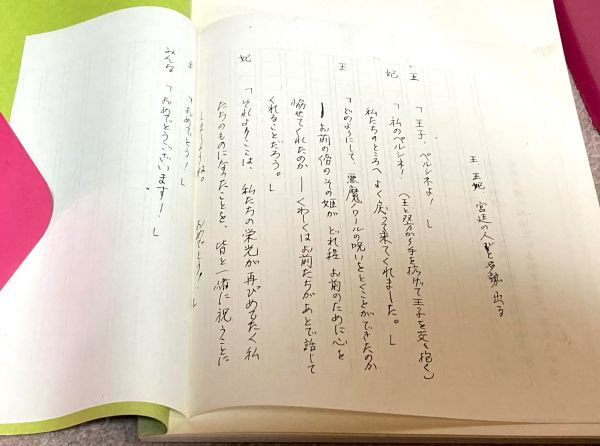 王、王妃 宮廷の人々多勢 出る
王 「王子、ペルシネよ！」
妃 「私のペルシネ！ (王と双方から手を拡げて王子を 抱く)
私たちのところへ よく戻って来てくれました。」
王 「どのようにして、悪魔ノワールの呪いをとくことができたのか
― お前の傍のその姫が どれ程 お前のために心を
悩せてくれたのか ― くわしくはお前たちがあとで話して
くれることだろう。」
妃 「それよりここは、私たちの栄光が再びめでたく私
たちのものになったことを、皆と一緒に祝うことに
しましょうね。 おめでとう！」
王 「おめでとう！」
みんな 「おめでとうございます！」